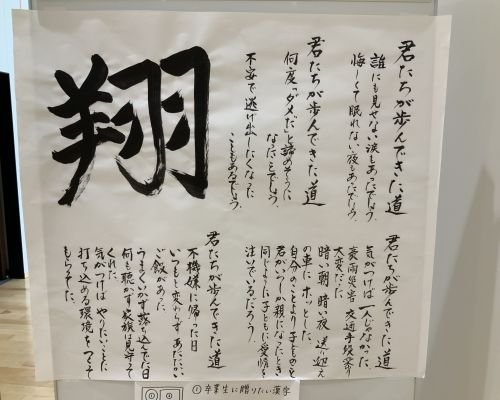 君たちが歩んできた道
誰にも見せない涙もあったでしょう
悔しくて眠れない夜もあったでしょう
君たちが歩んできた道
何度「ダメだ」と諦めそうに
なったことでしょう
不安で逃げ出したくなった
こともあるでしょう
翔
君たちが歩んできた道
気がつけば一人じゃなかった
豪雨災害 交通手段寄り
大変だった
暗い朝、暗い夜、送り迎え
の車に ホッとした
自分のことより子どものことを
君がいつしか親になったとき
同じように子どもに愛情を
注いでいるだろう
君たちが歩んできた道
不機嫌に帰った日
いつもと変わらずあたたかい
ご飯があった
うまくいかず落ち込んでた日
何も聴かず家族は見守って
くれた
気がつけば やりたいことに
打ち込める環境をつくって
もらってた。
① 卒業生に贈りたい漢字